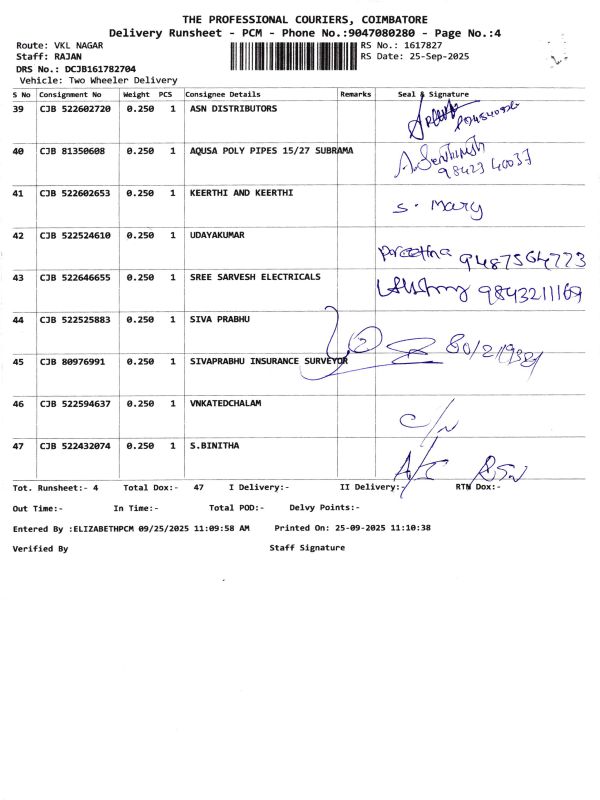 THE PROFESSIONAL COURIERS, COIMBATORE
Delivery Runsheet - PCM - Phone No.:9047080280 - Page No.:4
Route: VKL NAGAR
RS No.: 1617827
Staff: RAJAN
RS Date: 25-Sep-2025
DRS No.: DCJB161782704
Vehicle: Two Wheeler Delivery
S No Consignment No Weight PCS Consignee Details Remarks Seal & Signature
39 CJB 522602720 0.250 1 ASN DISTRIBUTORS
40 CJB 81350608 0.250 1 AQUSA POLY PIPES 15/27 SUBRAMA
98423 40037
41 CJB 522602653 0.250 1 KEERTHI AND KEERTHI
S. Mary
42 CJB 522524610 0.250 1 UDAYAKUMAR
9487564773
43 CJB 522646655 0.250 1 SREE SARVESH ELECTRICALS
9843211169
44 CJB 522525883 0.250 1 SIVA PRABHU
45 CJB 80976991 0.250 1 SIVAPRABHU INSURANCE SURVEYOR
46 CJB 522594637 0.250 1 VNKATEDCHALAM
C/N
47 CJB 522432074 0.250 1 S.BINITHA
Tot. Runsheet:- 4 Total Dox:- 47 I Delivery:- II Delivery:- RTN Dox:-
Out Time:- In Time:- Total POD:- Delvy Points:-
Entered By :ELIZABETHPCM 09/25/2025 11:09:58 AM Printed On: 25-09-2025 11:10:38
Verified By Staff Signature